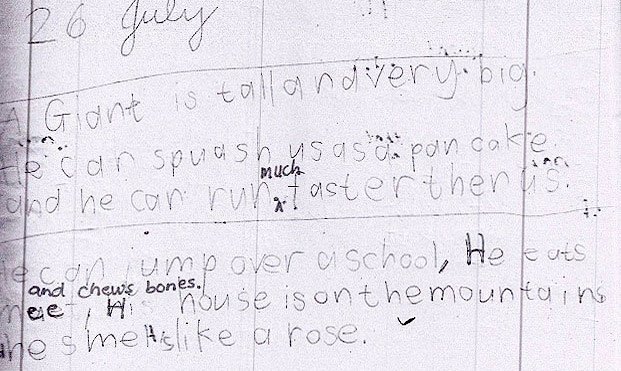 26 July
A Giant is tall and very big.
He can spuash us as a pan cake.
much
and he can run faster then us.
He can jump over a school, He eats
and chews bones.
meet, His house is on the mountains
he smells like a rose.